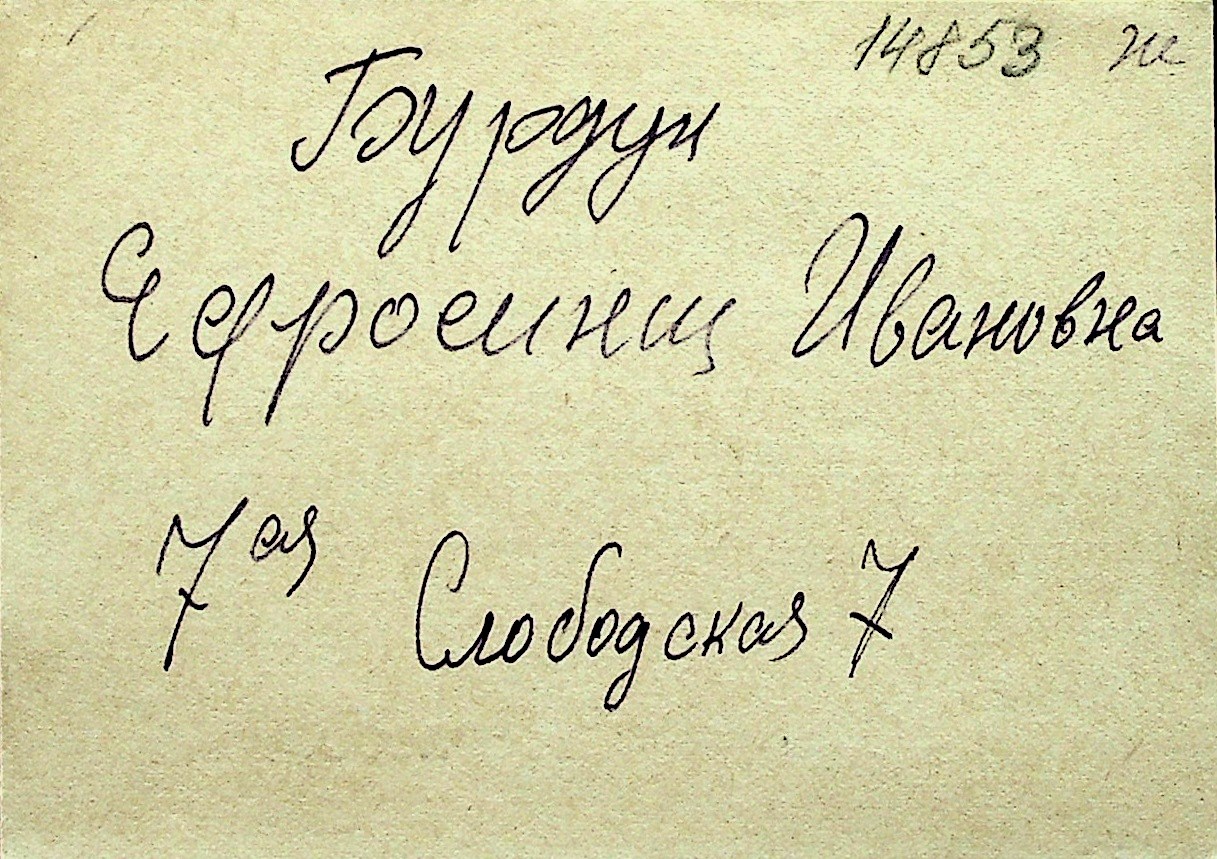 14853 ж
Бурдун
Ефросиния Ивановна
7ая Слободская 7